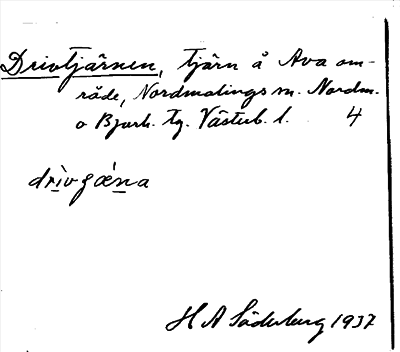 Drivtjärnen, tjärn å Ava om-
råde, Nordmalings sn. Nordm.
o Bjurh. tg. Västerb. l. 4
drìvɟǽna
H A Söderberg 1937